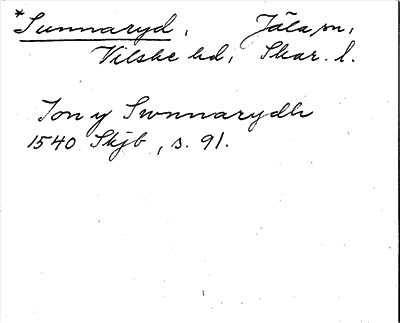 *Sunnaryd, Jäla sn,
Vilske hd, Skar. l.
Jon y Swnnarydh
1540 Skjb, s. 91.